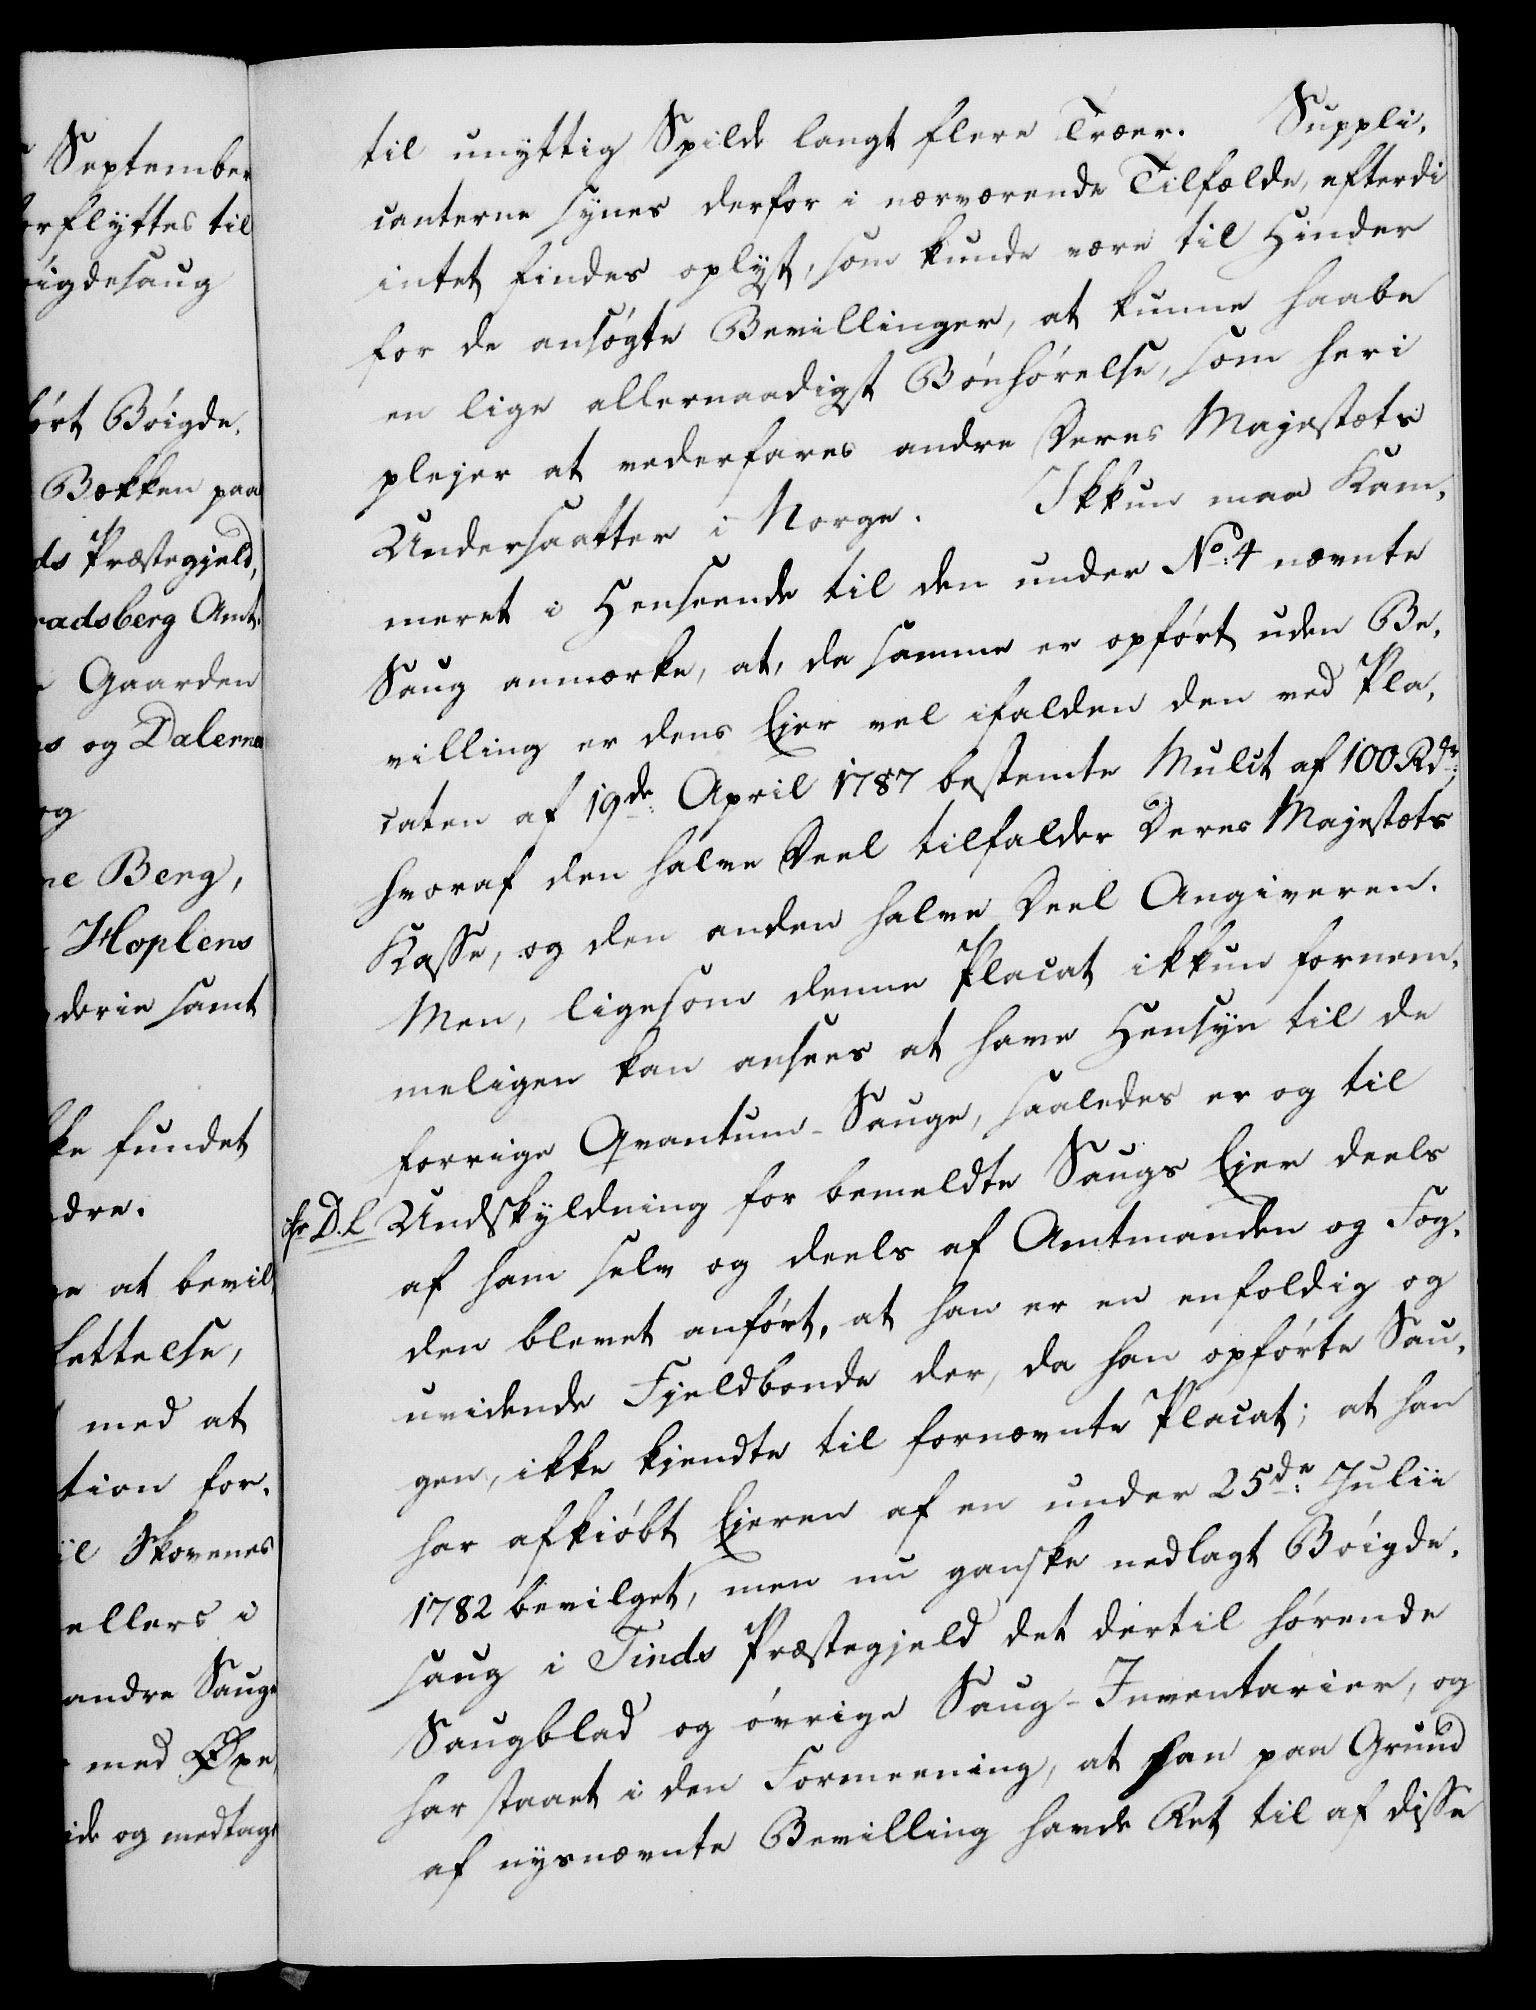 September
rflyttes til
igdesaug
ört Böigde,
Bækken paa
ds Præstegjeld,
radsberg Amt.
Gaarden
og Dalerne
og
ne Berg,
Hoplens
derie samt
ke fundet
dre.
at bevil,
lettelse,
med at
tion for,
il Skovenes
ellers i
andre Sauge
med Øxe,
ide og medtage
til unyttig Spilde langt flere Træer. Suppli,
canterne synes derfor i nærværende Tilfælde, efterdi
intet findes oplyst, som kunde være til Hinder
for de ansögte Bevillinger, at kunne haabe
en lige allernaadigst Bönhörelse, som heri
plejer at vederfares andre Deres Majestæts
Undersaatter i Norge. Ikkun maa Kam,
meret i Henseende til den under No: 4 nævnte
Saug anmærke, at, da samme er opfört uden Be,
villing er dens Ejer vel ifalden den ved Pla,
caten af 19de: April 1787 bestemte Mulct af 100 Rdr:
hvoraf den halve Deel tilfalder Deres Majestæts
Kasse, og den anden halve Deel Angiveren.
Men, ligesom denne Placat ikkun fornem,
meligen kan ansees at have Hensyn til de
forrige Qvantum-Sauge, saaledes er og til
D. L. Undskyldning for bemeldte Saugs Ejer deels
af ham selv og deels af Amtmanden og Fog,
den blevet anfört, at han er en enfoldig og
uvidende Fjeldbonde der, da han opförte Sau,
gen, ikke kjendte til fornævnte Placat; at han
har afkiöbt Ejeren af en under 25de: Julii
1782 bevilget, men nu ganske nedlagt Böigde,
saug i Tinds Præstegjeld det dertil hörende
Saugblad og övrige Saug-Inventarier, og
har staaet i den Formeening, at han paa Grund
af nysnævnte Bevilling havde Ret til af disse